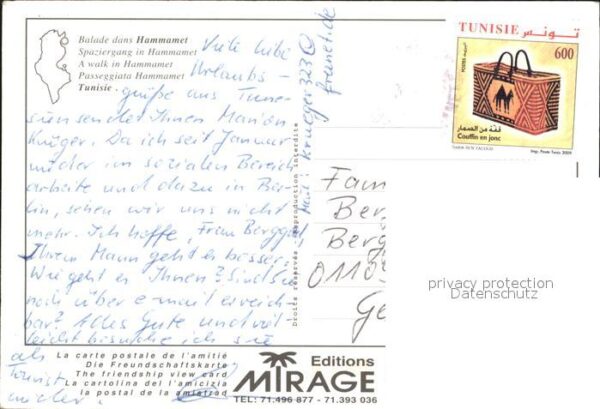 Balade dans Hammamet
Spaziergang in Hammamet
A walk in Hammamet
Passeggiata Hammamet
Tunisie -
Viele liebe
Urlaubs-
grüße aus Tune-
sien sendet Ihnen Marion
Krüger. Da ich seit Januar
wieder im sozialen Bereich
arbeite und dazu in Ber-
lin, sehen wir uns nicht
mehr. Ich hoffe, Frau Bergg
Ihrem Mann geht es besser.
Wie geht es Ihnen? Sind Sie
noch über e-mail erreich-
bar? Alles Gute und viel
leicht besuche ich sie
als
Tourist
wieder.
e-Mail: krueger323@
freenet.de
Droits réservés Reproduction interdite
TUNISIE تونس
600
قفة من السمار
Couffin en jonc
Frau
Ber
Berg
0110
Ge
privacy protection
Datenschutz
La carte postale de l'amitié
Die Freundschaftskarte
The friendship view card
La cartolina del l'amicizia
la postal de la amistad
Editions
MIRAGE
TEL: 71.496 877 - 71.393 036